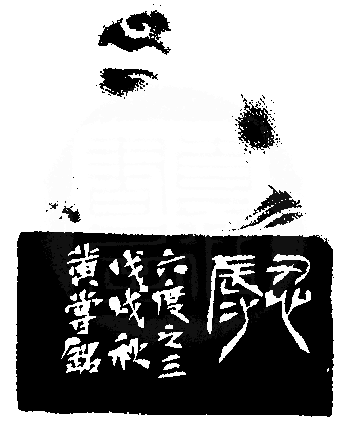 忍辱
六度之三
戊戌秋
黄尊銘